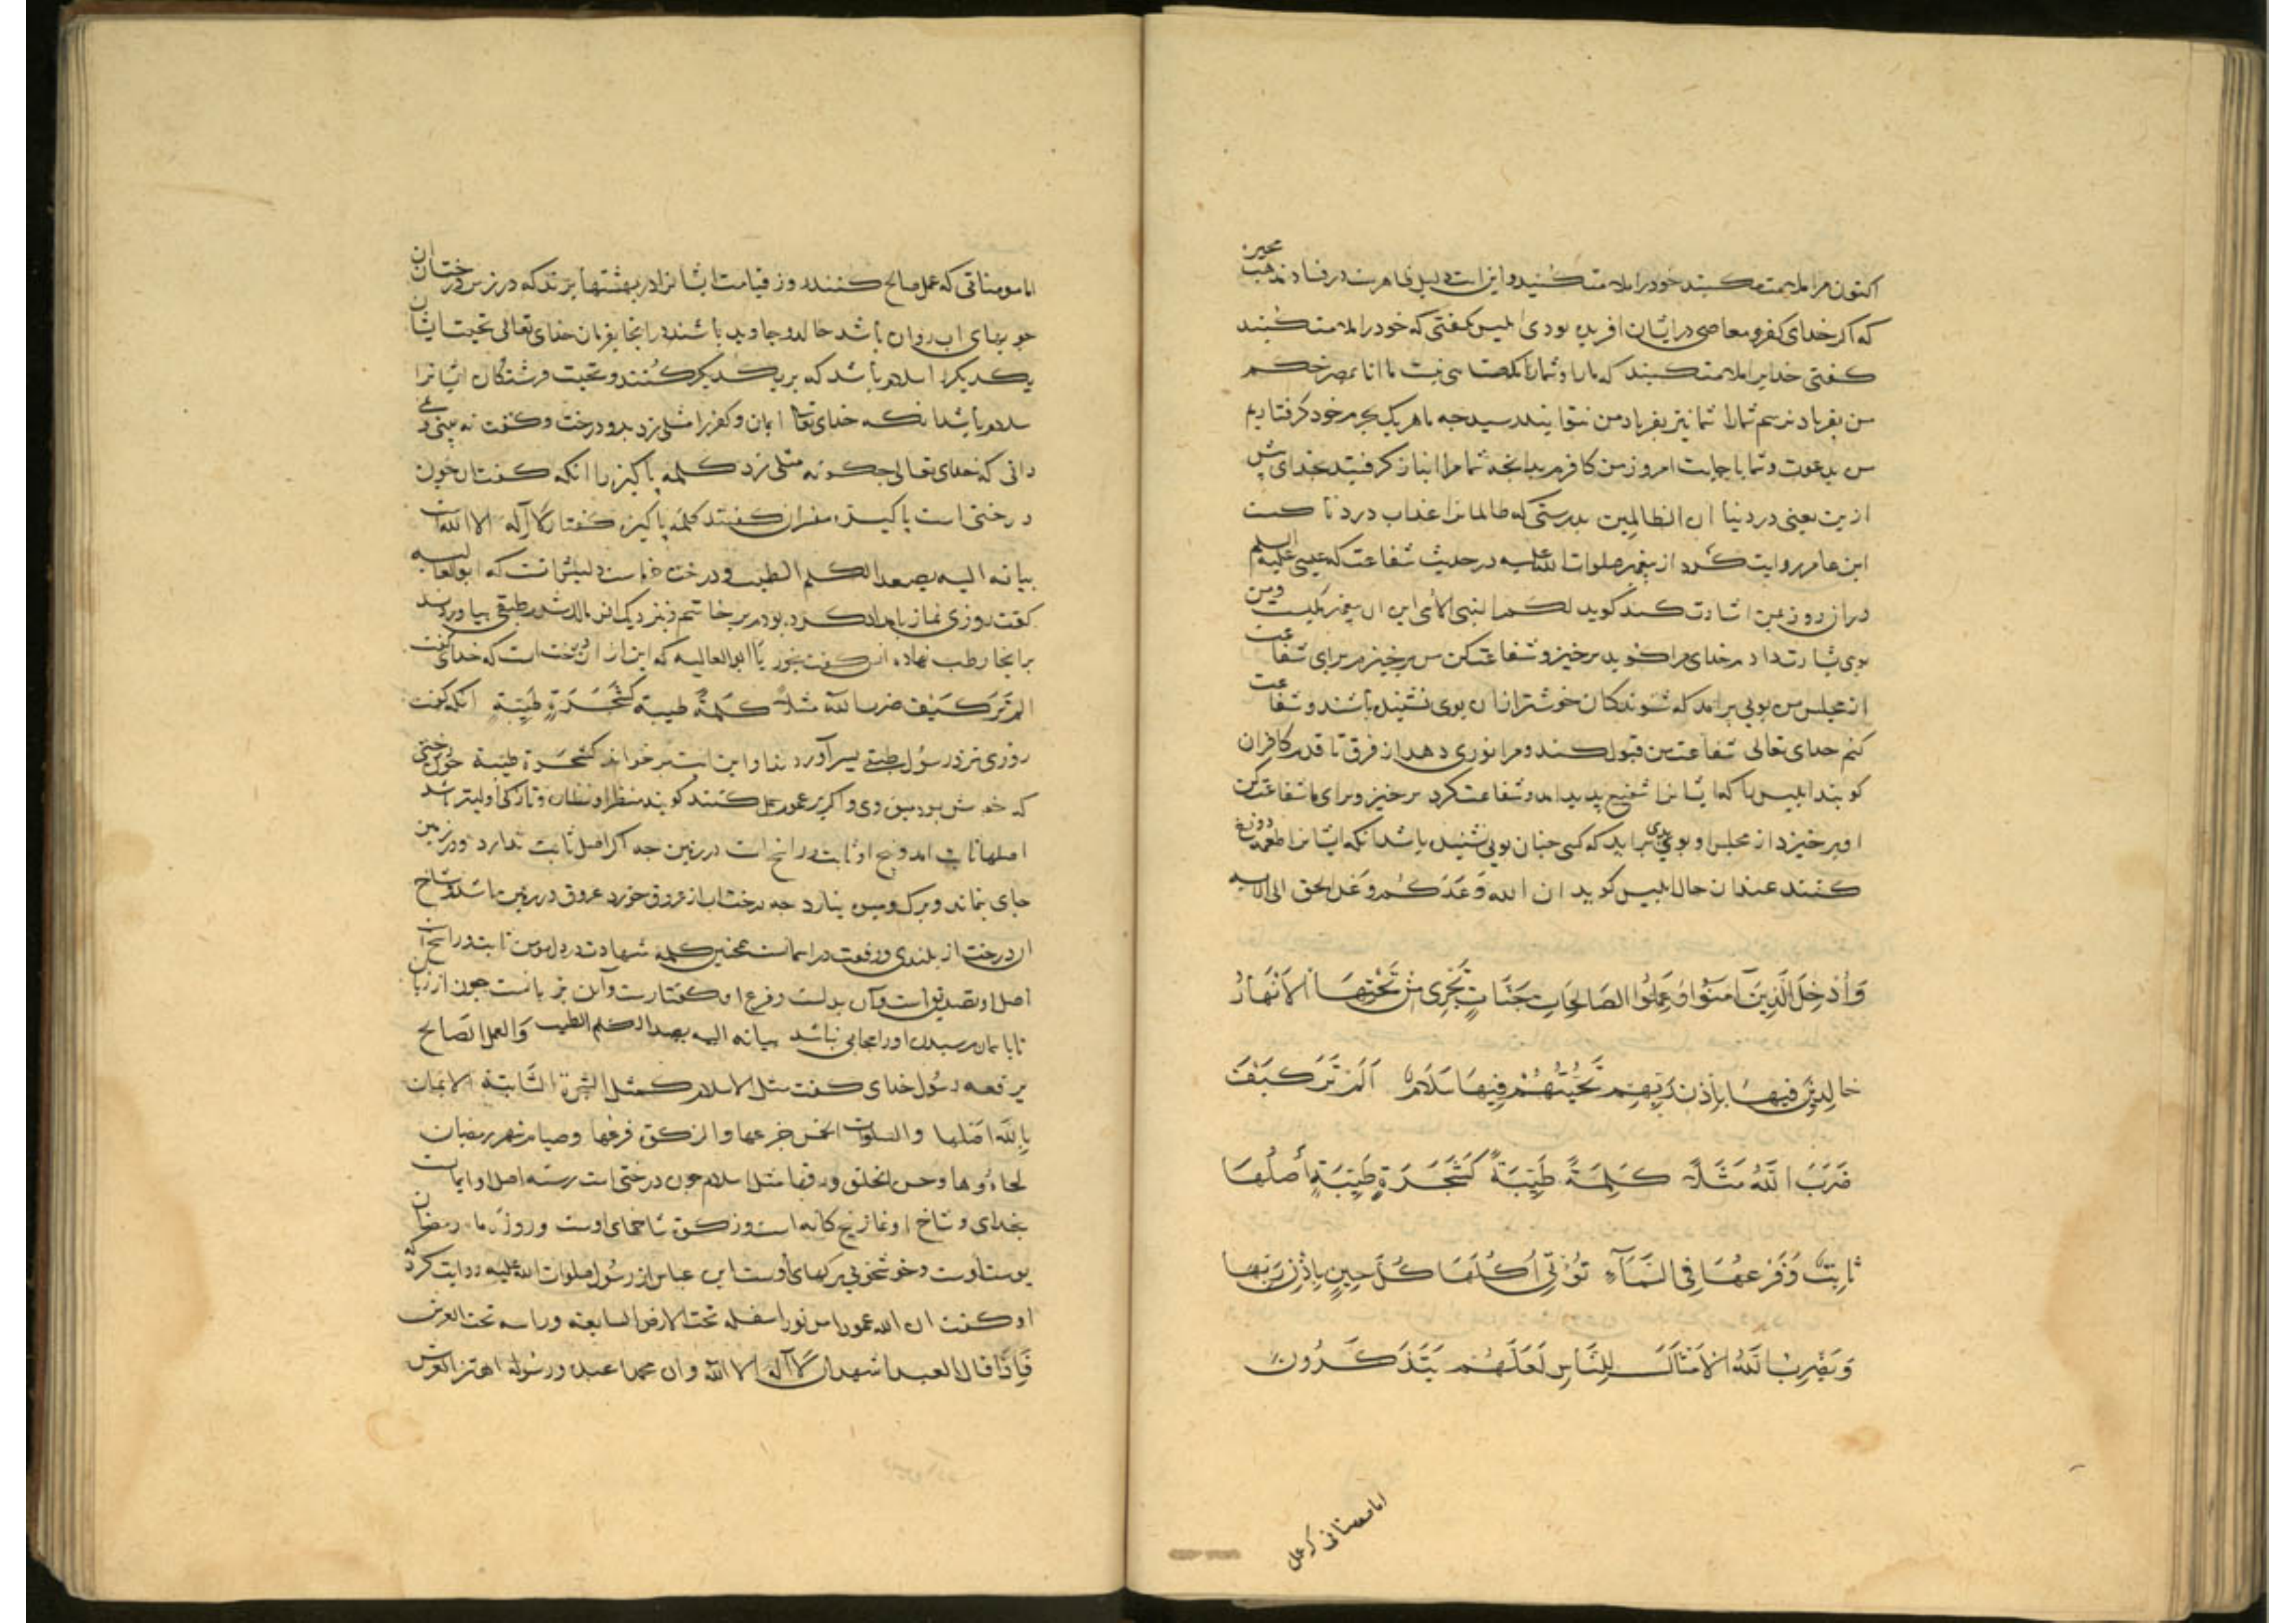 اکنون مرا ملامت مکنید خود را ملامت کنید و این است دلیل ظاهر در فساد مذهب مجبره
که اکر خدای کفر و معاصی در ایشان افریده بودی ابلیس نکفتی که خود را ملامت کنید
کفتی خدایرا ملامت کنید که مارا و شمارا ما انا بمصرخکم
من بفریاد نرسم شمارا شما نیز بفریاد من نتوانید رسید جه ما هر یک بجرم خود کرفتاریم
من بدعوت و شما باجابت امروز من کافرم بدانجه شما مرا انباز کرفتید بخدای پیش
ازین یعنی در دنیا ان الظالمین بدرستی که ظالمانرا عذاب دردناکست
ابن عامر روایت کرد از پیغمبر صلوات الله علیه در حدیث شفاعت که عیسی علیه السلم
دران روز بمن اشارت کند کوید لکم النبی الامی این ان پیغمبر یکیست ومن
بوی بشارت داد مر خدای مرا کوید برخیز و شفاعت کن من برخیزم برای شفاعت
از مجلس من بویی برامد که شنوندکان خوشتر ازان بوی نشنیده باشند و شفاعت
کنم خدای تعالی شفاعت من قبول کند و مرا نوری دهد از فرق تا قدم کافران
کویند ابلیس را که ایشانرا شفیع پدید امد و شفاعت کرد برخیز و برای ما شفاعت کن
او برخیزد از مجلس او بویی بدی براید که کسی جنان بویی نشنیده باشد انکه ایشانرا طعمه دوزخ
کنند عندان حال ابلیس کوید ان الله وَعَدَکُم وَعْدَ الحق الی الایه
وَأُدْخِلَ الَّذِينَ آمَنُوا وَعَمِلُوا الصَالِحَاتِ جَنَّاتٍ تَجْرِی مِن تَحْتِهَا الأَنْهَارُ
خَالِدِینَ فِیهَا بِإِذْنِ رَبِّهِم تَحِیَّتُهُمْ فِیهَا سَلَامٌ اَلَمْ تَرَ کَیْفَ
ضَرَبَ اللَّهُ مَثَلاً کَلِمَةً طَیِّبَةً کَشَجَرَةٍ طَیِّبَةٍ أَصْلُهَا
ثَابِتٌ وَفَرْعُهَا فِی السَّمَآءِ تُؤْتِی أُکُلَهَا کُلَّ حِینٍ بِإِذْنِ رَبِّهَا
وَیَضْرِبُ اللَّهُ الأَمْثَالَ لِلنَّاسِ لَعَلَّهُمْ یَتَذَکَّرُونَ
اما مومنانی که عمل
اما مومنانی که عمل صالح کنند روز قیامت ایشانرا در بهشتها برند که در زیر درختان
جویهای اب روان باشد خالد و جاوید باشند در انجا بفرمان خدای تعالی تحیت ایشان
یکدیکررا سلام باشد که بر یکدیکر کنند و تحیت فرشتکان ایشانرا
سلام باشد انکه خدای تعا ایمان و کفررا مثلی زد بدو درخت و کفت نه بینی و
دانی که خدای تعالی جکونه مثلی زد کلمه پاکیزه را انکه کفت ان جون
درختی است پاکیزه مفسران کفتند کلمه پاکیزه کفتار لَا إله الا الله است
بیانه الیه یصعد الکلم الطیب و درخت خرماست دلیلش انست که ابوالعالیه
کفت روزی نماز بامداد کرده بودم برخاستم و بنزدیک انس مالک شدم طبقی بیاوردند
برانجا رطب نهاده انس کفت بخور یا ابوالعالیه که این از ان درخت است که خدای کفت
الم تَرَ کَیْفَ ضرب الله مثلاً کَلِمَةً طیبة کَشَجَرَةٍ طَیِّبَةٍ انکه کفت
روزی نزد رسُول طبقی بسر آوردند او این ایت برخواند کشَجَرَة طیبة جون درختی
که خوش بود میوه وی و اکر بر عموم حمل کنند کویند منظر او نظارت و تازکی اولیتر باشد
اصلها ثابت امد و بیخ او ثابت و راسخ است در زمین جه اکر اصل ثابت ندارد در زمین
جای نماند و برک و میوه نیارد جه درخت اب از عروق خورد عروق در زمین باشد و شاخ
ان درخت از بلندی و رفعت در اسمانست همجنین کلمه شهادت در دل مومن ثابت و راسخ است
اصل او تصدیق است و آن بدلست و فرع او کفتارست و آن بزبانست جون از زبان
تا باسمان رسیدن اورا حجابی نباشد بیانه الیه یصعد الکلم الطیب وَالعمل الصَالح
یرفعه رسُول خدای کفت مثل الاسلام کمثل الشجرة الثابتة الایمان
بِاللّه اصلها والصلوات الخمس جذعها والزکوة فرعها وصیام شهر رمضان
لحاؤها وحسن الخلق ورقها مثل اسلام جون درختی است رسته اصل او ایمانست
بخدای و شاخ او نماز پنج کانه است و زکوة شاخهای اوست و روزه ماه رمضان
پوست اوست و خوشخویی برکهای اوست ابن عباس از رسُول صلوات الله علیه روایت کرد
او کفت ان لله عمودا من نور اسفله تحت الارض السابعة وراسه تحت العرش
فَإِذَا قال العبد اشهد ان لَا اله الا اللّه وان محمدا عبده ورسوله اهتز العرش